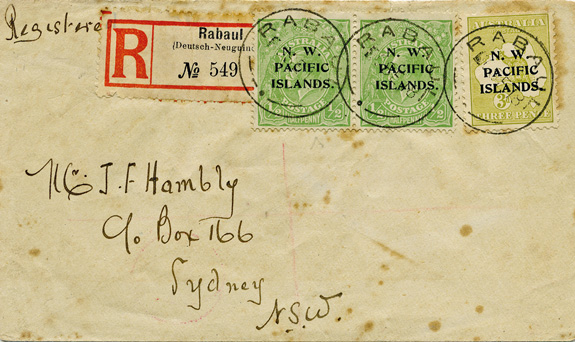 Registered
R
Rabaul
(Deutsch-Neuguinea
№ 549
N. W.
PACIFIC
ISLANDS.
POSTAGE
HALFPENNY
½
RABAUL
N. W.
PACIFIC
ISLANDS.
POSTAGE
HALFPENNY
½
RABAUL
AUSTRALIA
N. W.
PACIFIC
ISLANDS.
3D
THREE PENCE
RABAUL
J. F Hambly
C/o Box 166
Sydney
N.S.W.